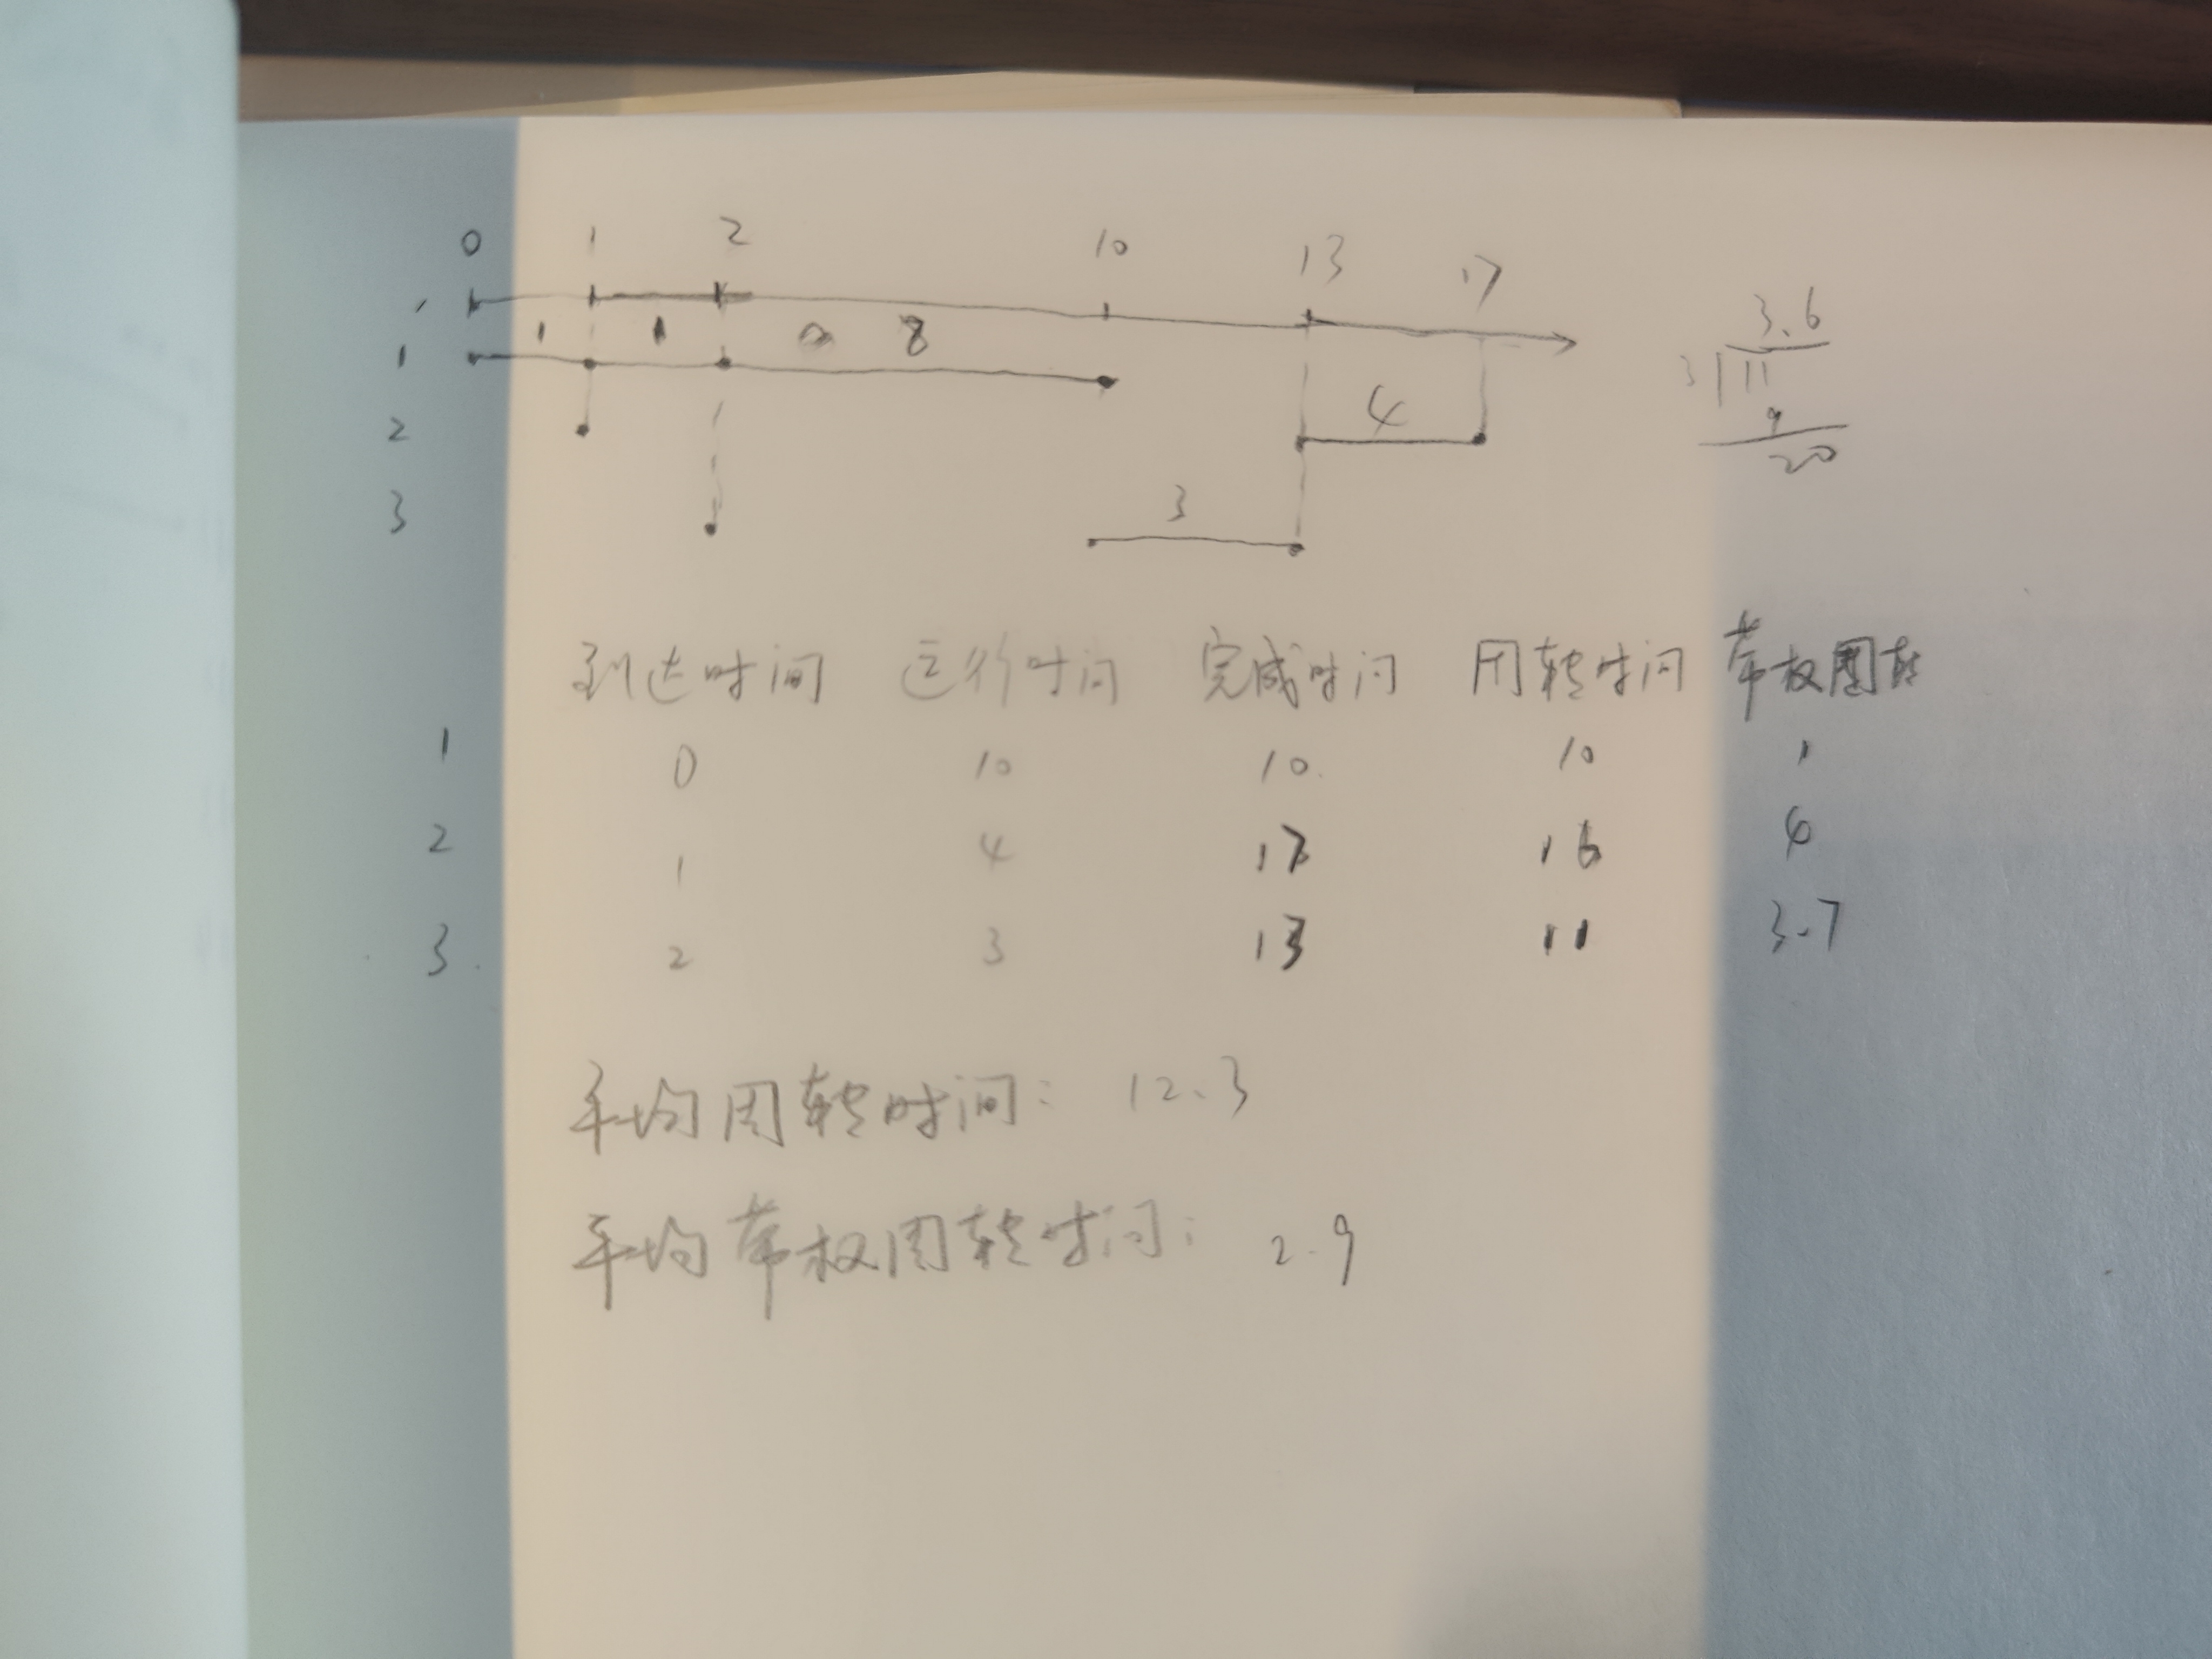 0 1 2 10 13 17
1
1 1 1 8
2 4
3 3
3.6
3 11
9
20
到达时间 运行时间 完成时间 周转时间 带权周转
1 0 10 10 10 1
2 1 4 17 16 4
3 2 3 13 11 3.7
平均周转时间: 12.3
平均带权周转时间: 2.9